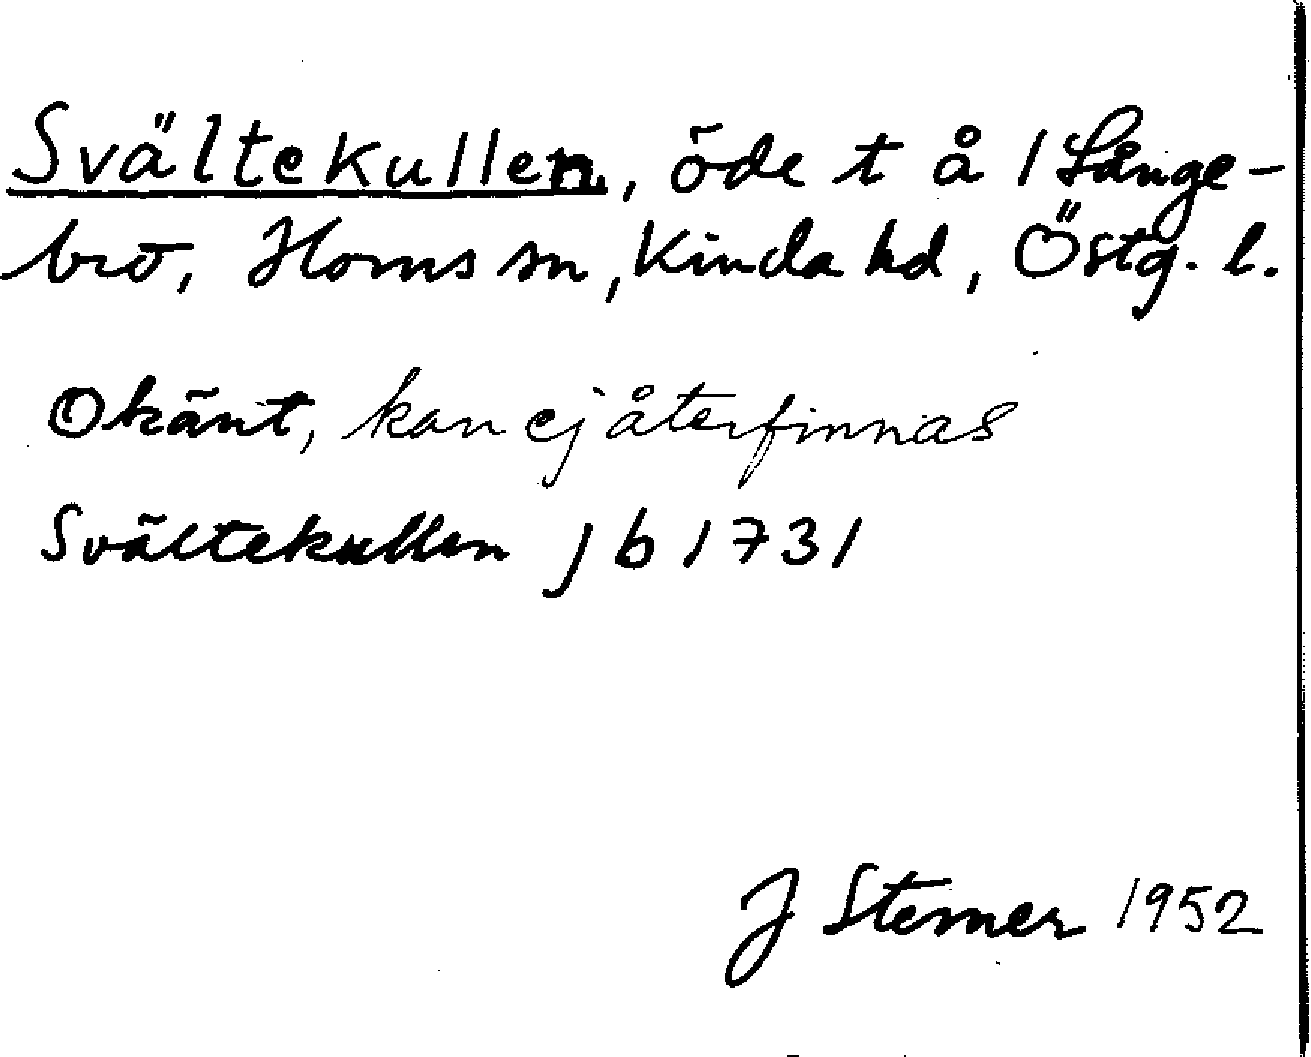 Svältekullen, öde t å 1 Långe-
bro, Horns sn, Kinda hd, Östg. l.
Okänt, kan ej återfinnas
Svältekullen jb 1731
J Sterner 1952